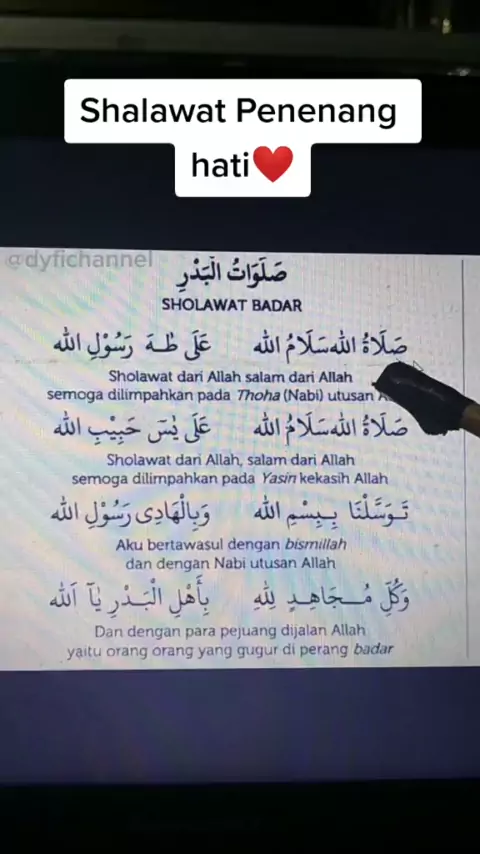 Shalawat Penenang
hati❤️
@dyfichannel
صَلَوَاتُ الْبَدْرِ
SHOLAWAT BADAR
صَلَاةُ الله سَلَامُ الله عَلَى طٰـهَ رَسُوْلِ الله
Sholawat dari Allah salam dari Allah
semoga dilimpahkan pada Thoha (Nabi) utusan
صَلَاةُ الله سَلَامُ الله عَلَى يٰسٓ حَبِيْبِ الله
Sholawat dari Allah, salam dari Allah
semoga dilimpahkan pada Yasin kekasih Allah
تَـوَسَّلْنَا بِـبِسْمِ الله وَبِالْهَادِى رَسُوْلِ الله
Aku bertawasul dengan bismillah
dan dengan Nabi utusan Allah
وَكُلِّ مُـجَاهِـدٍ لِلّٰهِ بِأَهْلِ الْبَـدْرِ يَآ اَلله
Dan dengan para pejuang dijalan Allah
yaitu orang orang yang gugur di perang badar